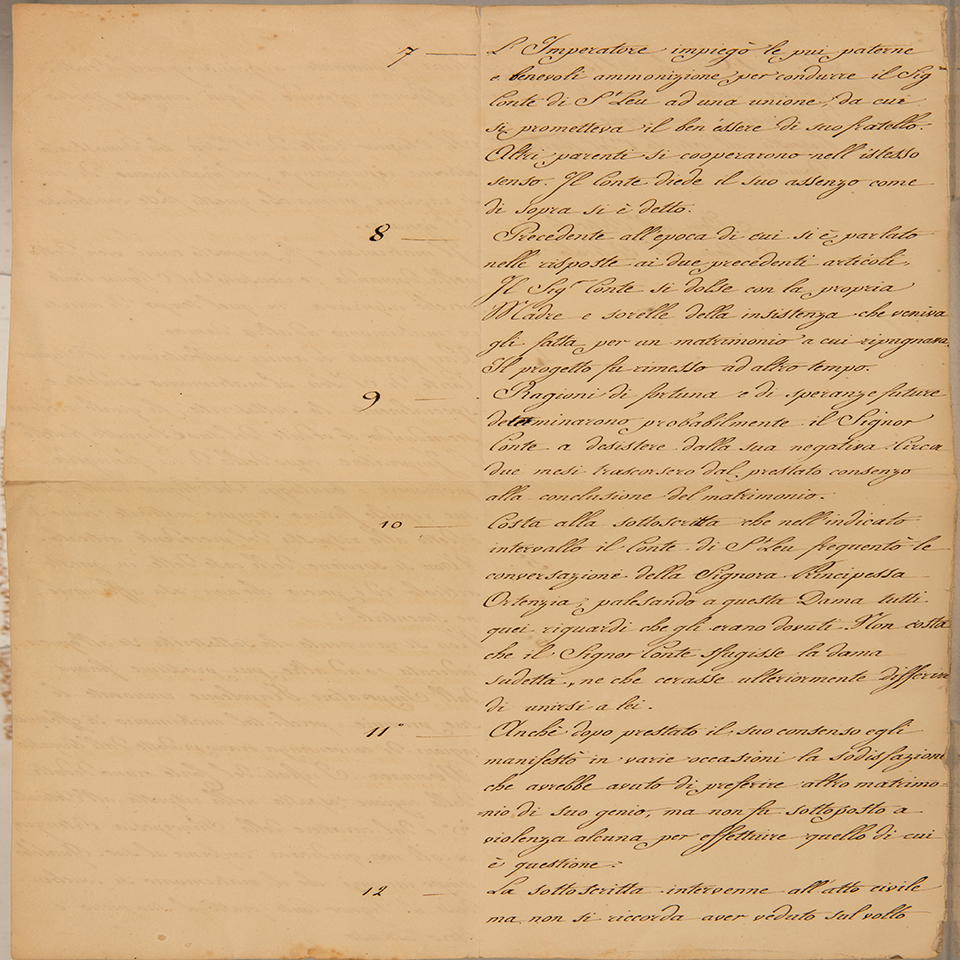 7 — L'Imperatore impiegò le piu paterne
e benevoli ammonizione per condurre il Sigr
Conte di St Leu ad una unione, da cui
si prometteva il ben'essere di suo fratello.
Altri parenti si cooperarono nell'istesso
senso. Il Conte diede il suo assenzo come
di sopra si è detto.
8 — Precedente all'epoca di cui si è parlato
nelle risposte ai due precedenti articoli,
Il Sigr Conte si dolse con la propria
Madre e sorelle della insistenza che veniva
gli fatta per un matrimonio a cui ripugnava.
Il progetto fu rimesso ad altro tempo.
9 — Ragioni di fortuna e di speranze future
determinarono probabilmente il Signor
Conte a desistere dalla sua negativa. Circa
due mesi trascorsero dal prestato consenzo
alla conclusione del matrimonio.
10 — Costa alla sottoscritta che nell'indicato
intervallo il Conte di St Leu frequentò le
conversazione della Signora Principessa
Ortenzia, palesando a questa Dama tutti
quei riguardi che gli erano dovuti. Non costa
che il Signor Conte sfugisse la dama
sudetta, ne che cerasse ulteriormente differire
di unirsi a lei.
11° — Anchè dopo prestato il suo consenso egli
manifestò in varie occasioni la sodisfazione
che avrebbe avuto di preferire altro matrimo=
nio di suo genio, ma non fu sottoposto a
violenza alcuna per effettuire quello di cui
è questione.
12 — La sottoscritta intervenne all'atto civile
ma non si riccorda aver veduto sul volto